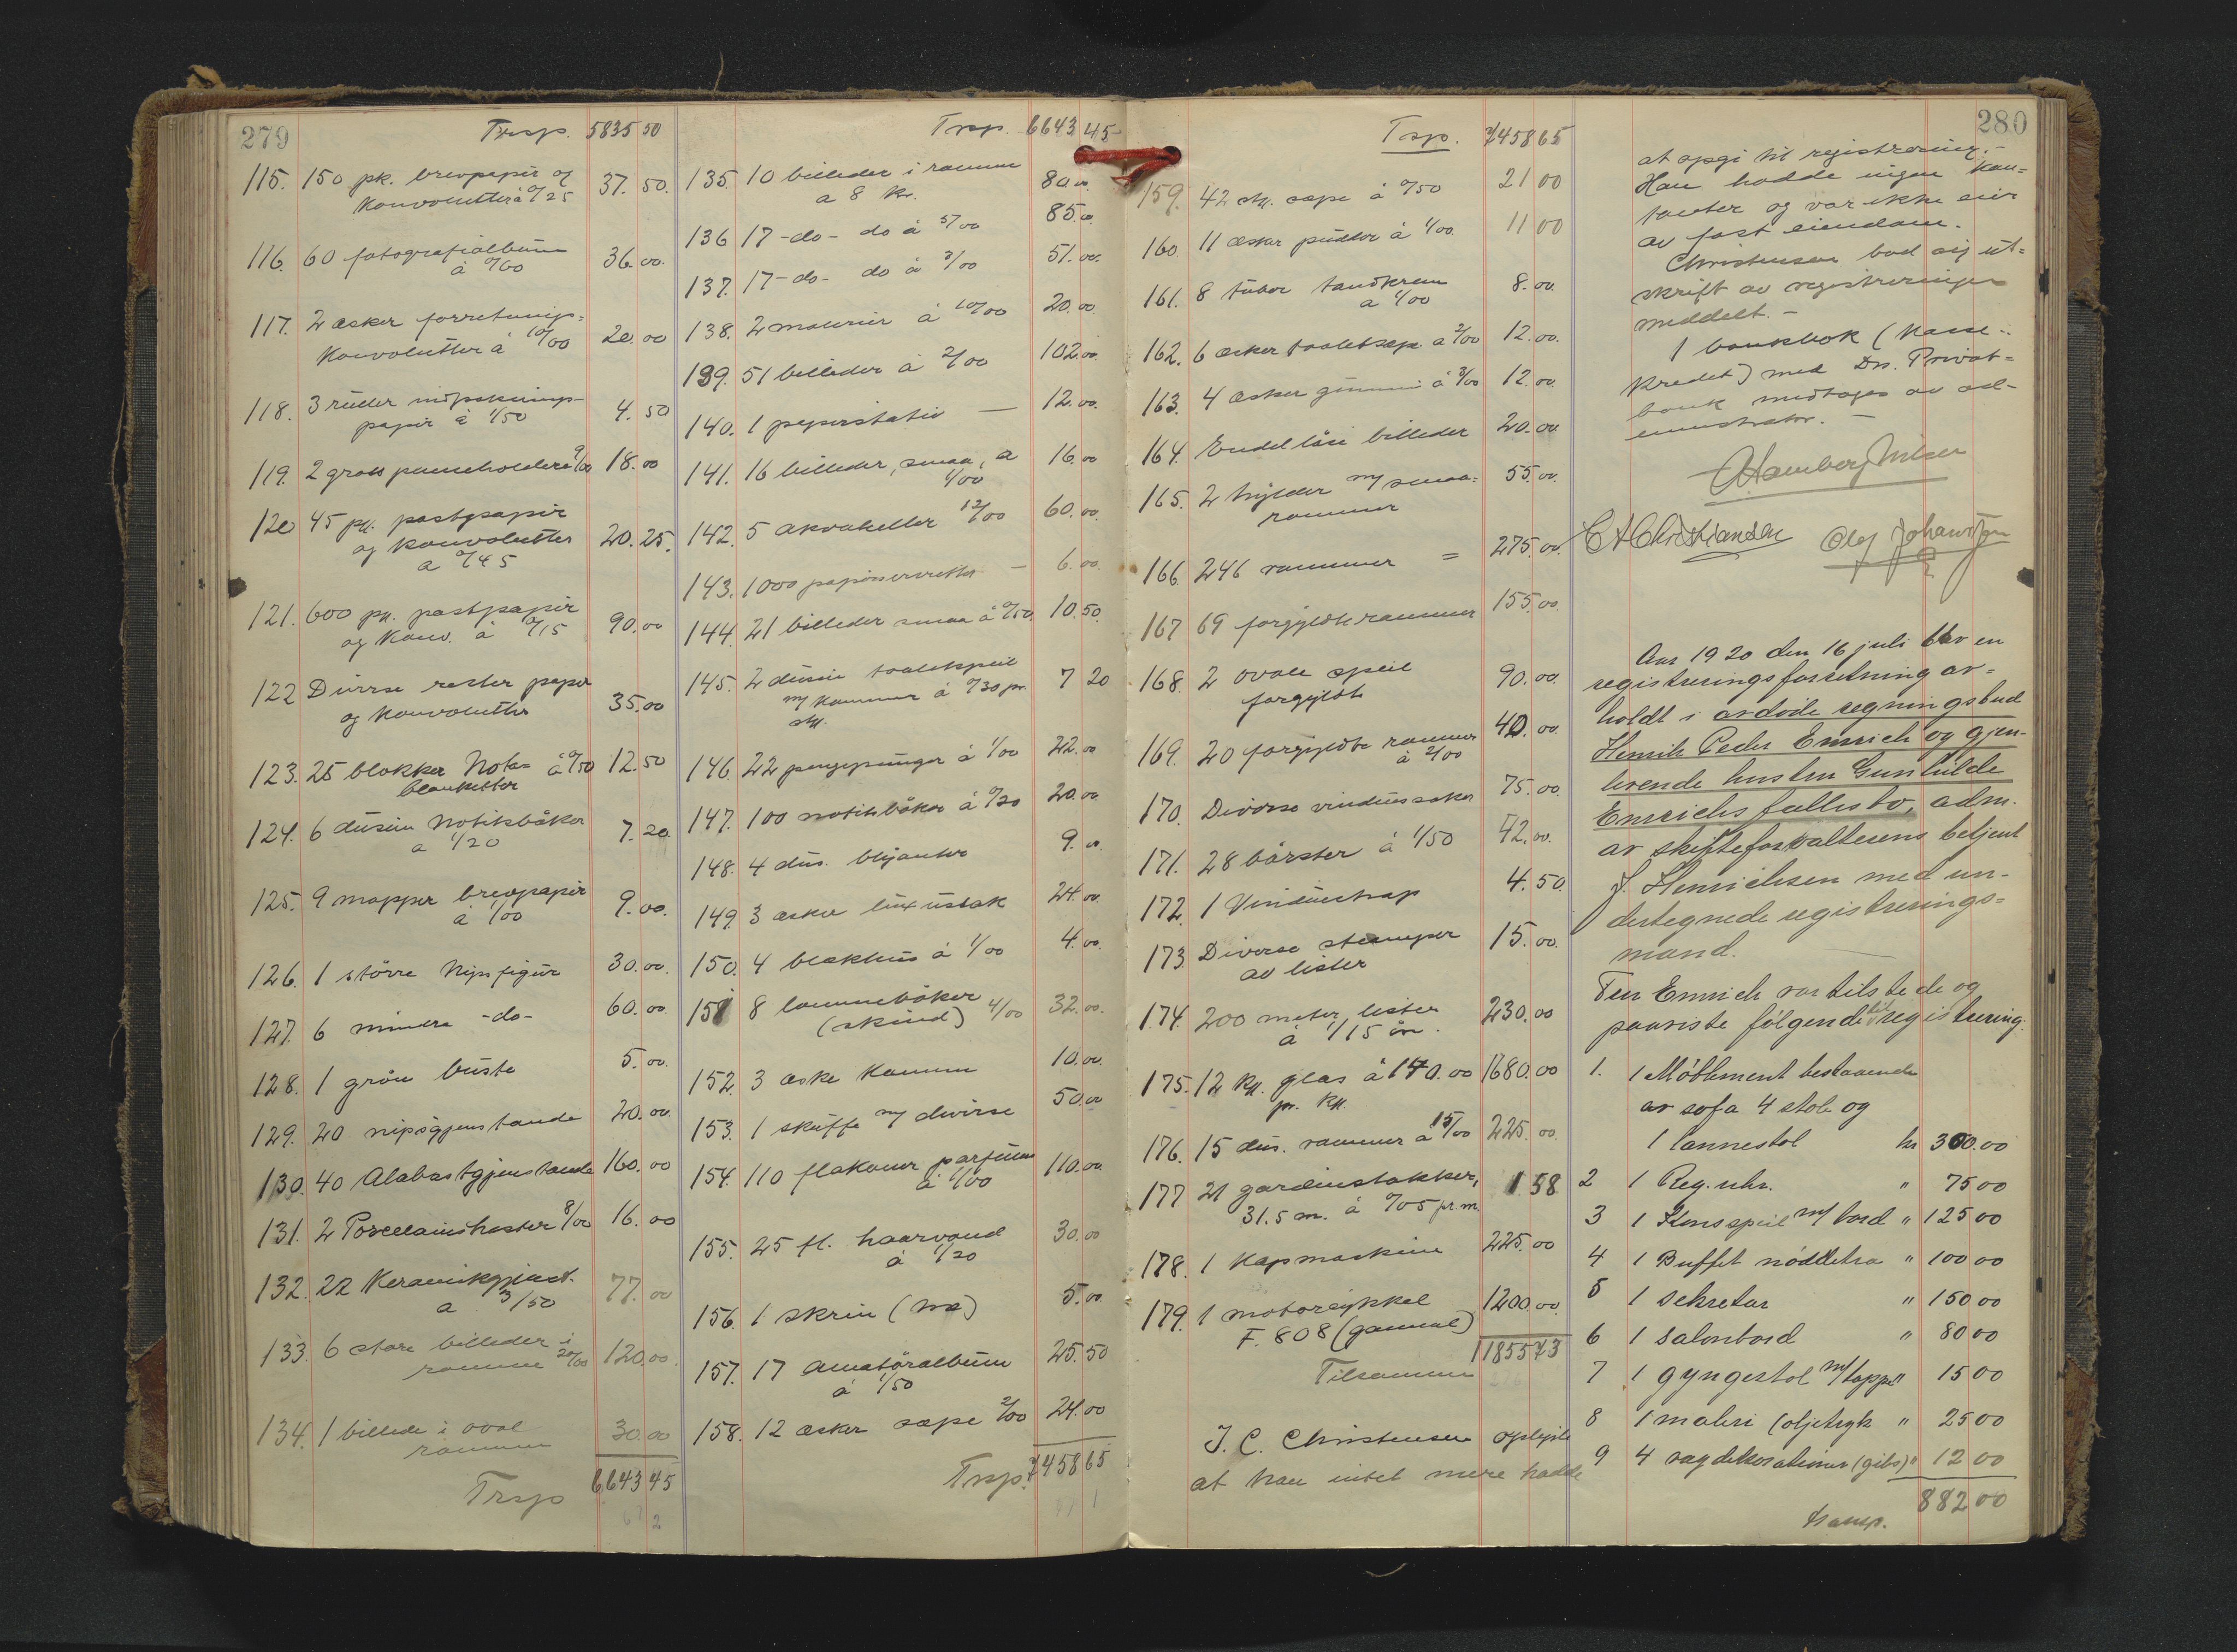 279
Trsp. 5835 50
115. 150 pk. brevpapir og
Konvolutter à 0/25 37. 50.
116. 60 fotografialbum
à 0/60 36. 00.
117. 2 æsker forretnings-
Konvolutter à 10/00 20. 00
118. 3 ruller indpaknings-
papir à 1/50 4. 50
119. 2 gross penneholdere 9/00 18. 00
120 45 pk. postpapir
og Konvolutter
a 0/45 20. 25.
121. 600 pk. postpapir
og Konv. à 0/15 90. 00
122 Diverse rester papir
og Konvolutter 35. 00
123. 25 blokker Nota- à 0/50 12. 50
blanketter
124. 6 dusin Notisbøker
a 1/20 7. 20
125. 9 mapper brevpapir
à 1/00 9. 00.
126. 1 större Nipsfigur 30. 00.
127. 6 mindre -do- 60. 00.
128. 1 grön buste 5. 00.
129. 20 nipsgjenstande 20. 00.
130. 40 Alabastgjenstande 160. 00
131. 2 Porcellainshester 8/00 16. 00
132. 22 Keramikgjenst.
a 3/50 77. 00
133. 6 store billeder i
ramme 20/00 120. 00.
134. 1 billede i oval
ramme 30. 00
Trsp 6643 45
Trsp. 6643 45
135. 10 billeder i ramme
a 8 kr. 80 00.
136 17 -do- do à 5/00 85. 00
137. 17 -do- do à 3/00 51. 00.
138. 2 malerier à 10/00 20. 00
139. 51 billeder à 2/00 102. 00.
140. 1 papirstativ — 12. 00.
141. 16 billeder, smaa, a
1/00 16. 00
142. 5 akvareller 12/00 60. 00.
143. 1000 papirservietter — 6. 00.
144. 21 billeder smaa à 0/50 10. 50.
145. 2 dusin toaletspeil
m/ kammer à 0/30 pr.
stk. 7 20
146. 22 pengepunger à 1/00 22. 00
147. 100 notisbøker à 0/20 20. 00
148. 4 dus. blyanter 9. 00.
149. 3 æsker luxuslak 24. 00.
150. 4 blækhus à 1/00 4. 00.
151 8 lommebøker
(skind) 4/00 32. 00.
152. 3 æske Kamme 10. 00.
153. 1 skuffe m/ diverse 50. 00
154. 110 flakoner parfume
à 1/00 110. 00.
155. 25 fl. haarvand
à 1/20 30. 00
156. 1 skrin (træ) 5. 00.
157. 17 amatöralbum
à 1/50 25. 50
158. 12 æsker sæpe 2/00 24. 00
Trsp. 7458 65
Trsp. 7458 65
159. 42 stk. sæpe à 0/50 21 00
160. 11 æsker pudder à 1/00. 11 00
161. 8 tuber tandkrem
a 1/00 8. 00.
162. 6 æsker toaletsæpe a 2/00 12. 00.
163. 4 æsker gummi à 3/00 12. 00.
164. Endel löse billeder 20. 00.
165. 2 hylder m/ smaa-
rammer 55. 00.
166. 246 rammer = 275. 00.
167 69 forgyldte rammer 155. 00.
168. 2 ovale speil
forgyldt 90. 00.
169. 20 forgyldte rammer
à 2/00 40. 00.
170. Diverse vindussaker 75. 00.
171. 28 börster à 1/50 42. 00.
172. 1 Vindustrap 4. 50.
173. Diverse stumper
av lister 15. 00.
174. 200 meter lister
à 1/15 öre. 230. 00
175. 12 Kk. glas à 140.00 1680. 00
pr. Kk.
176. 15 dus. rammer à 15/00 225. 00.
177 21 gardinstokker,
31.5 m. à 0/05 pr. m. 1 58
178. 1 Kapmaskine 225. 00
179. 1 motorcykkel
F. 808 (gammel) 1200. 00.
Tilsammen 11855 73
J. C. Christensen oplyste
at han intet mere hadde
280
at opgi til registrering.-
Han hadde ingen kon-
tanter og var ikke eier
av fast eiendom.
Christensen bad sig ut-
skrift av registreringen
meddelt.-
1 bankbok (Kasse-
Kredit) med Drs. Privat-
bank medtages av ad-
ministrator.-
C A Christiansen Olaf Johansen
Aar 1920 den 16 juli blev en
registreringsforretning av-
holdt i avdöde regningsbud
Henrik Peder Emrich og gjen-
levende hustru Gunhilde
Emrichs fallesbo, adm.
av skifteforvalterens betjent
J. Henrichsen med un-
dertegnede registrerings-
mand.
Fru Emrich var tilstede og
paaviste följende til registrering:
1. 1 Möblement bestaaende
av sofa 4 stole og
1 lænestol kr 300.00
2 1 Reg. uhr. " 75 00
3 1 Konsspeil m/ bord " 125 00
4 1 Buffet nöddetræ " 100 00
5 1 sekretær " 150 00
6 1 salonbord " 80 00
7 1 gyngestol m/ teppe " 15 00
8 1 maleri (oljetryk " 25 00
9 4 vægdekorationer (gibs) " 12 00
transp. 882 00